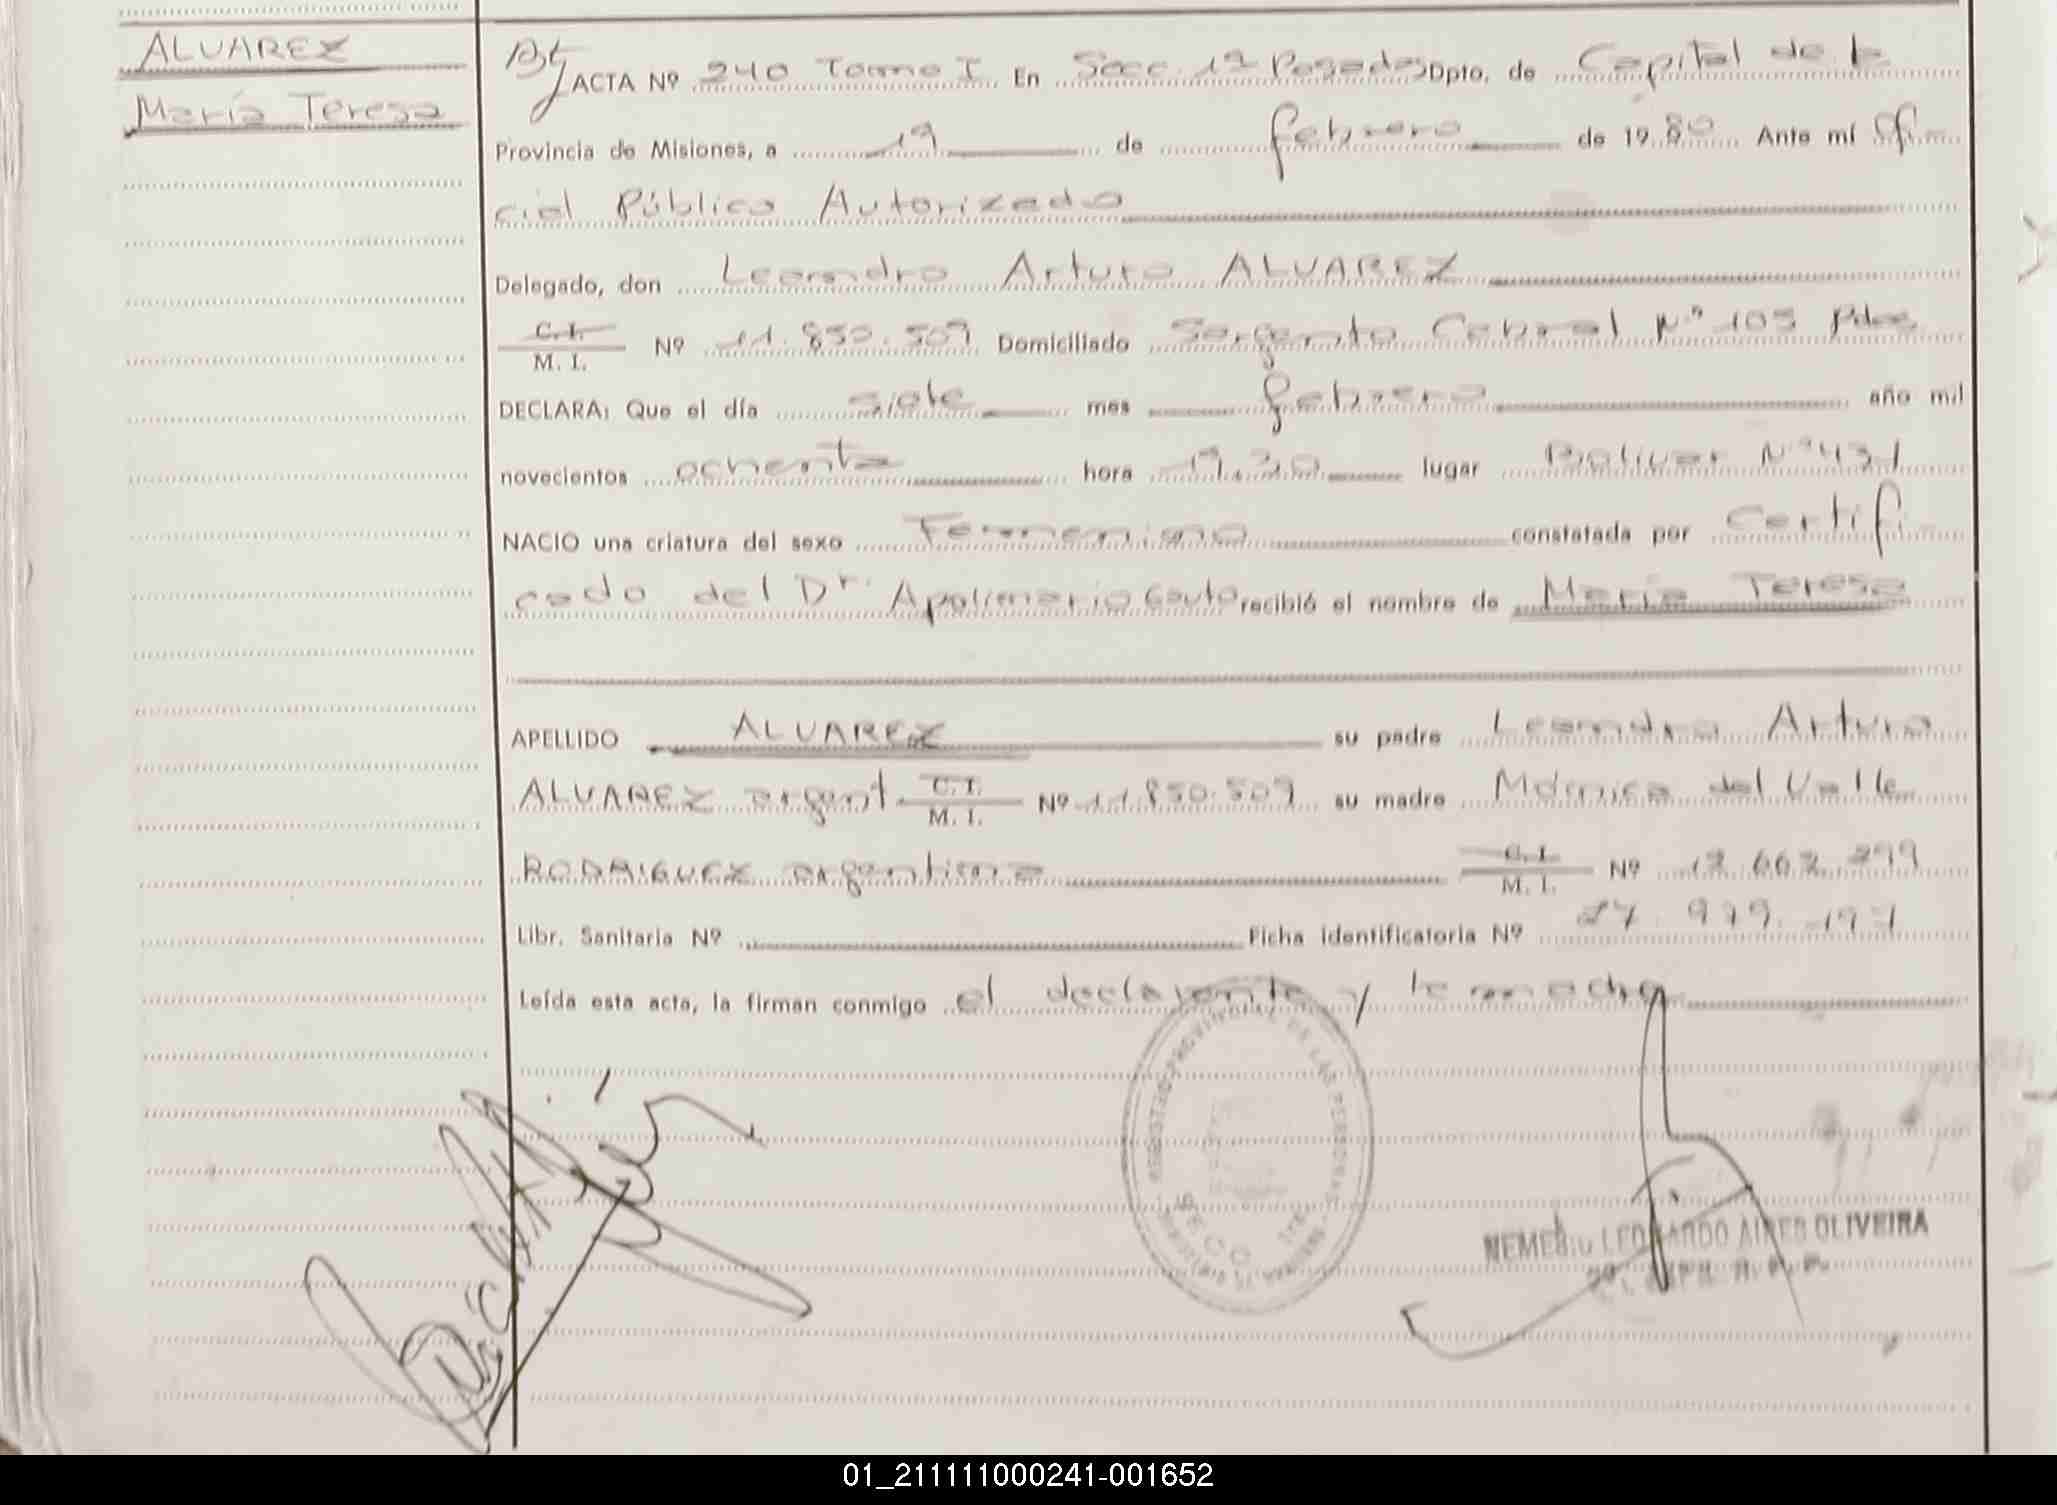 ALVAREZ
María Teresa
ACTA Nº 240 Tomo I En Secc. 1ª Posadas Dpto. de Capital de la
Provincia de Misiones, a 19 de febrero de 1980 Ante mí Ofi
cial Público Autorizado
Delegado, don Leandro Arturo ALVAREZ
C. I.
M. I. Nº 11.850.509 Domiciliado Sargento Cabral Nº 105 Pdas
DECLARA: Que el día siete mes febrero año mil
novecientos ochenta hora 19.30 lugar Bolivar Nº 431
NACIO una criatura del sexo Femenino constatada por Certifi
cado del Dr. Apolinario Couto recibió el nombre de María Teresa
APELLIDO ALVAREZ su padre Leandro Arturo
ALVAREZ argent. C. I.
M. I. Nº 11.850.509 su madre Mónica del Valle
RODRIGUEZ argentina C. I.
M. I. Nº 12.662.299
Libr. Sanitaria Nº Ficha identificatoria Nº 27.979.197
Leída esta acta, la firman conmigo el declarante y la madre
REGISTRO PROVINCIAL DE LAS PERSONAS
NEMESIO LEONARDO AIRES OLIVEIRA
01_211111000241-001652